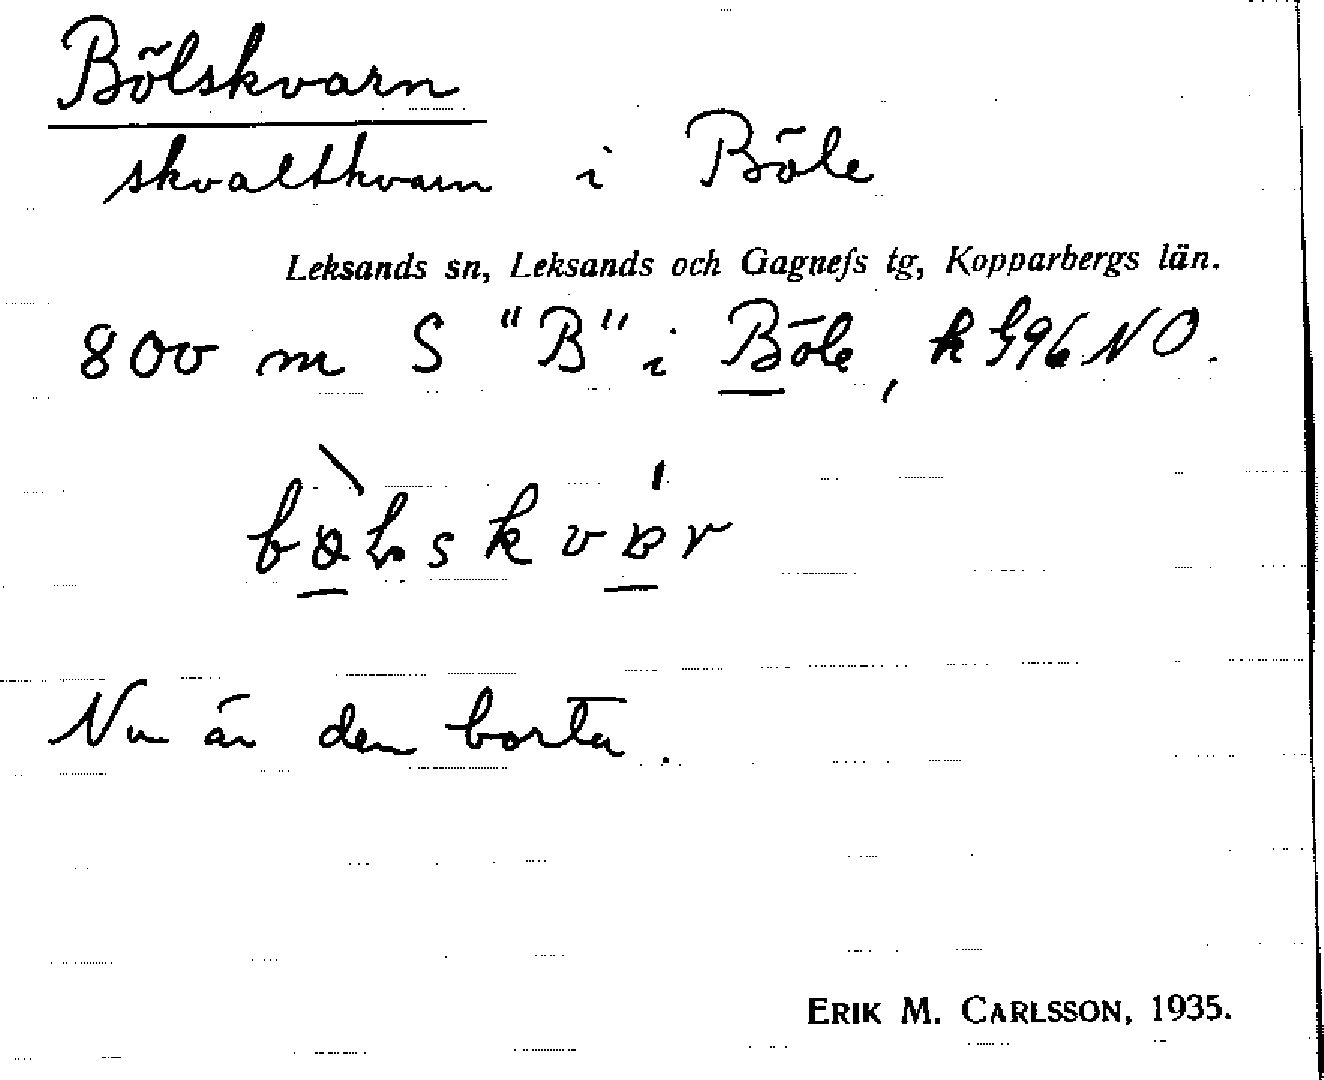 Bölskvarn
skvaltkvarn i Böle
Leksands sn, Leksands och Gagnefs tg, Kopparbergs län.
800 m S "B" i Böle, k 996 NO.
Nu är den borta.
ERIK M. CARLSSON, 1935.